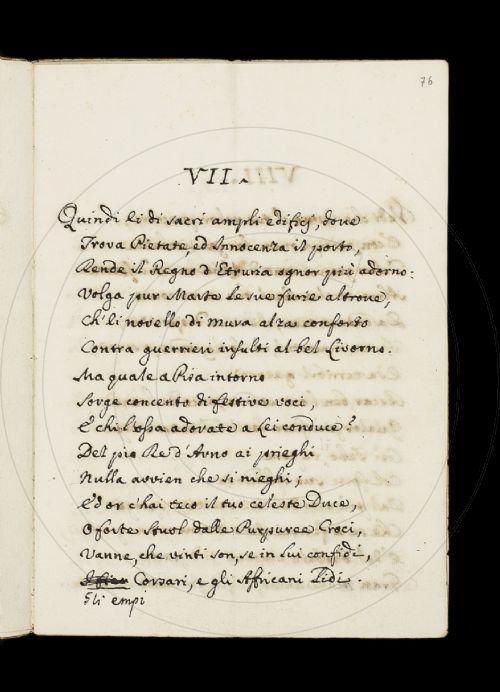 76
VII.
Quindi li di sacri ampli edificj, dove
Trova Pietate, ed Innocenza il porto,
Rende il Regno d'Etruria ognor più adorno:
Volga pur Marte le sue furie altrove,
Ch'li novello di mura alza conforto
Contra guerrieri insulti al bel Livorno.
Ma quale a Pisa intorno
Sorge concento di festive voci,
E chi l'ossa adorate a Lei conduce?
Del pio Re d'Arno ai prieghi
Nulla avvien che si nieghi;
Ed or c'hai teco il tuo celeste Duce,
O forte stuol dalle Purpuree Croci,
Vanne, che vinti son, se in lui confidi,
Corsari, e gli Affricani Lidi.
Gli empi